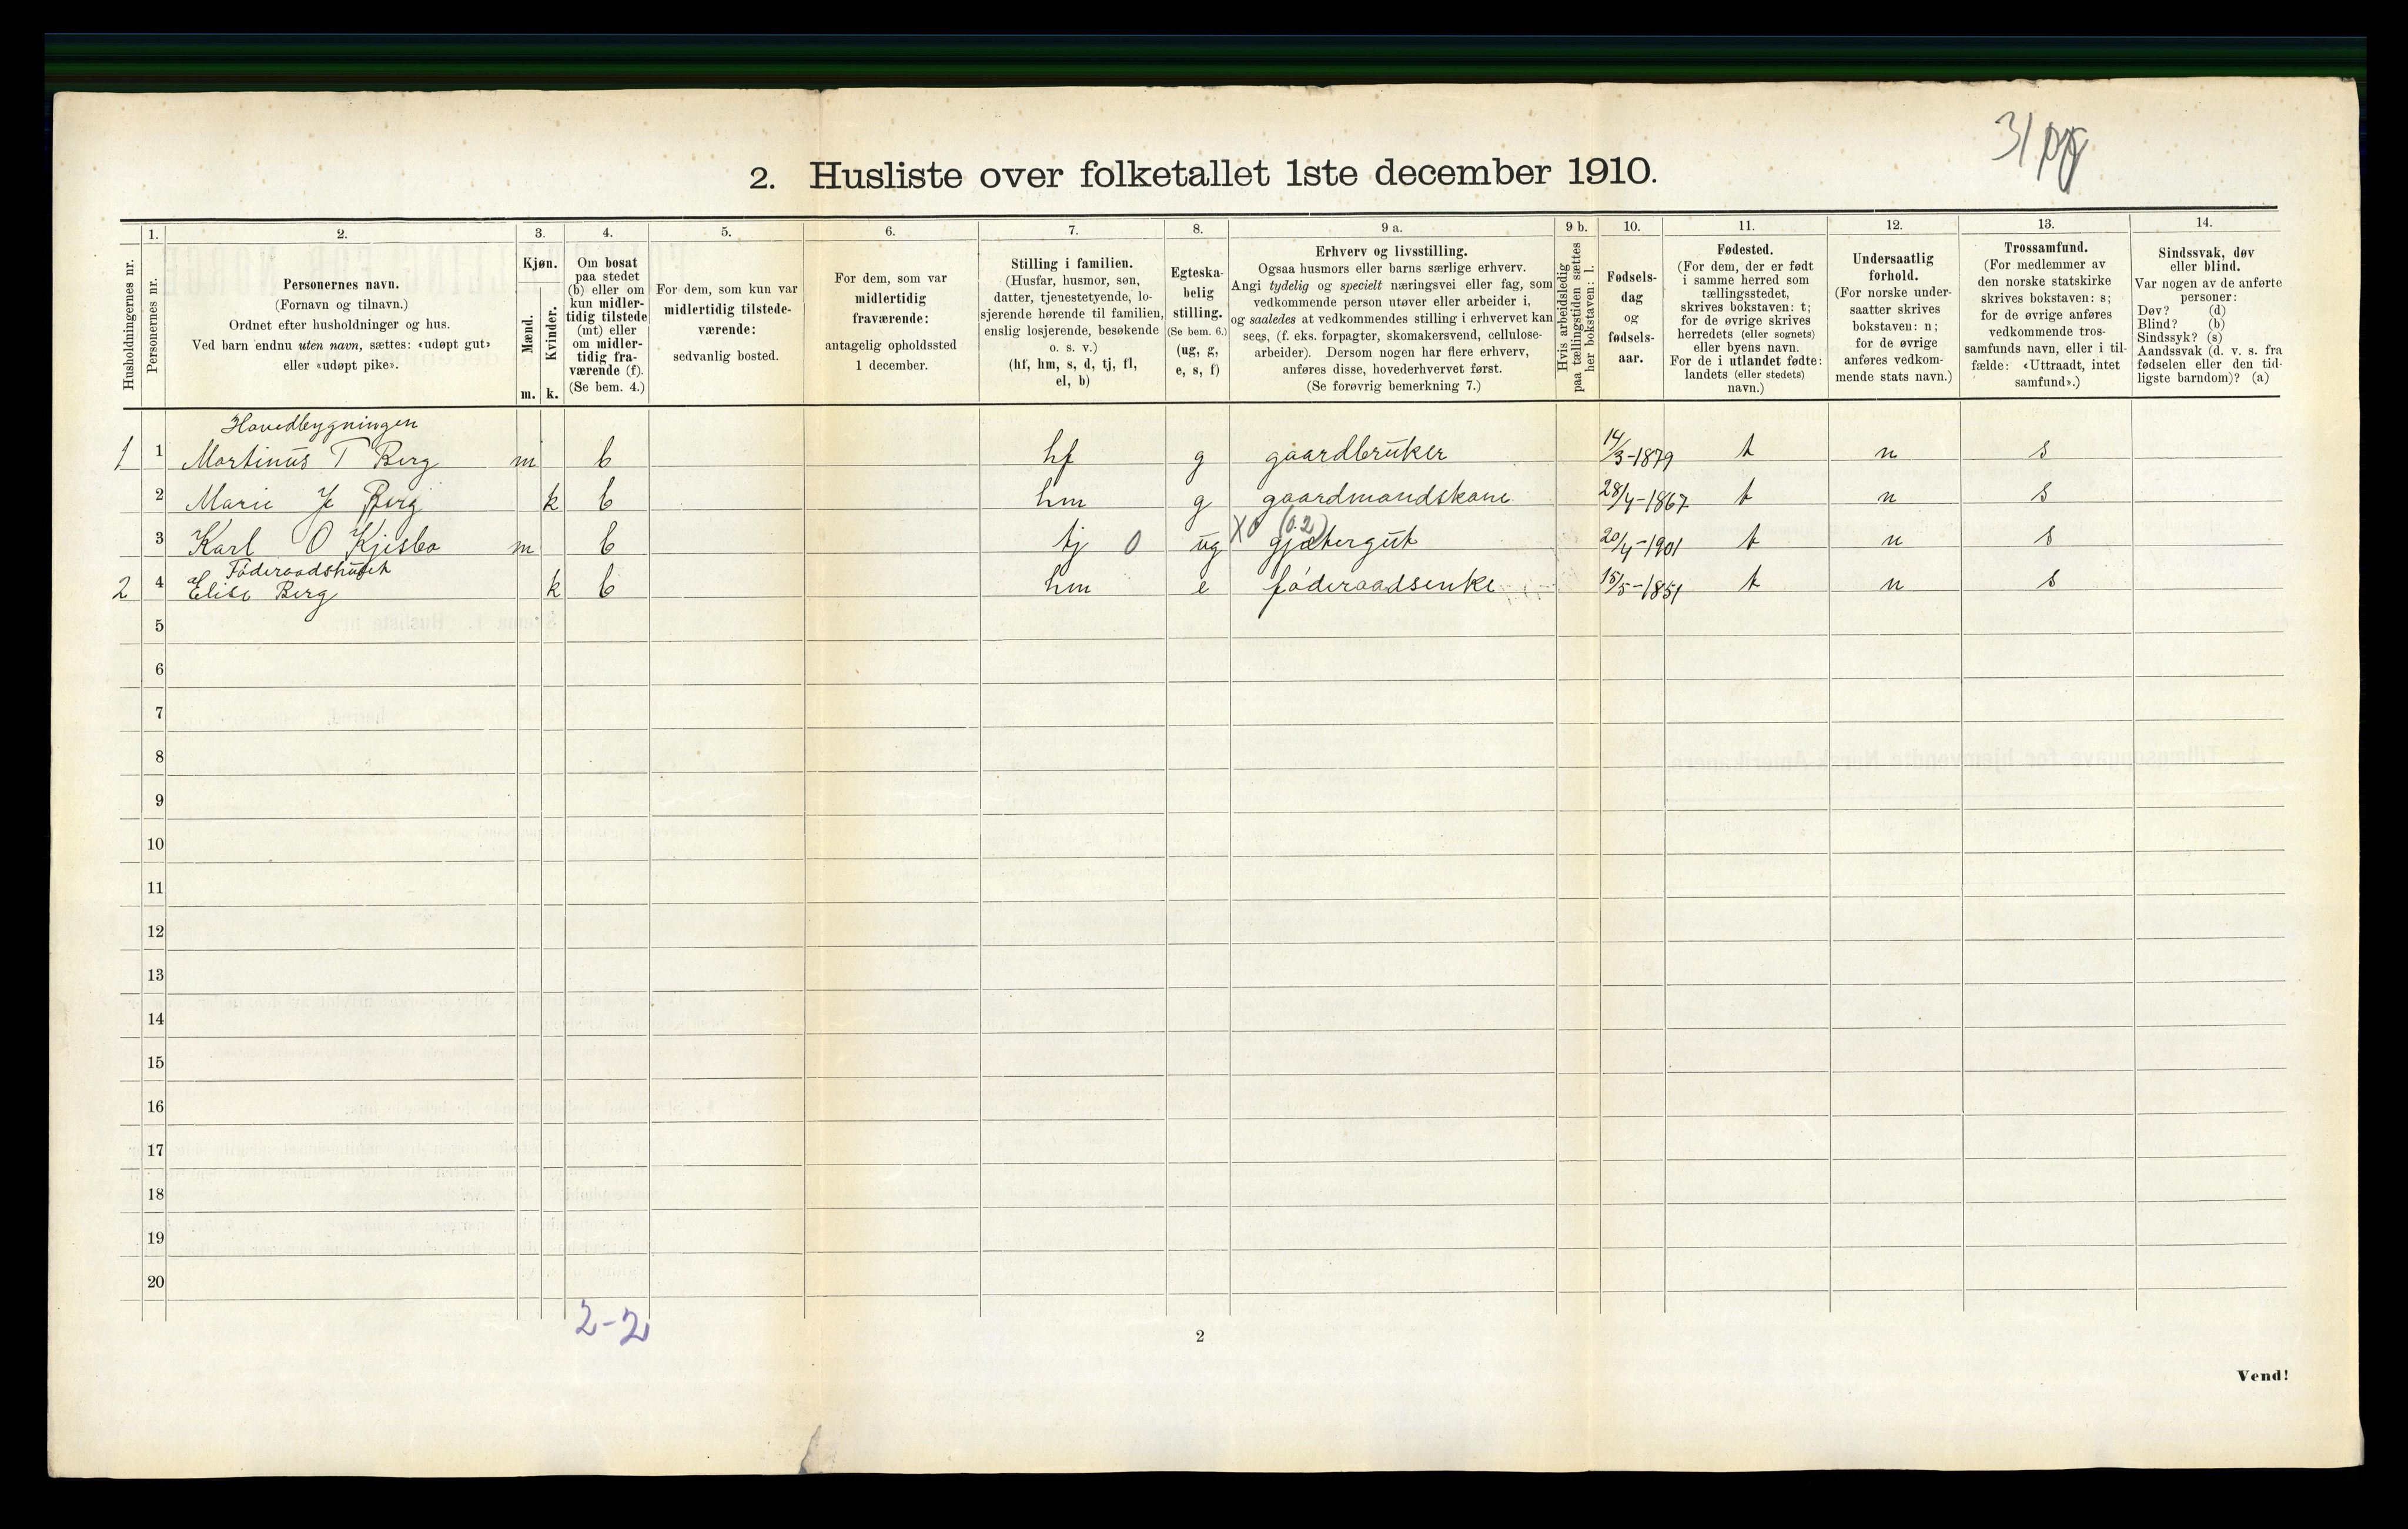 2. Husliste over folketallet 1ste december 1910.
1. 2. 3. 4. 5. 6. 7. 8. 9 a. 9 b. 10. 11. 12. 13. 14.
Husholdningernes nr.
Personernes nr.
Personernes navn.
(Fornavn og tilnavn.)
Ordnet efter husholdninger og hus.
Ved barn endnu uten navn, sættes: «udøpt gut»
eller «udøpt pike».
Kjøn.
Mænd.
Kvinder.
m. k.
Om bosat
paa stedet
(b) eller om
kun midler-
tidig tilstede
(mt) eller
om midler-
tidig fra-
værende (f).
(Se bem. 4.)
For dem, som kun var
midlertidig tilstede-
værende:
sedvanlig bosted.
For dem, som var
midlertidig
fraværende:
antagelig opholdssted
1 december.
Stilling i familien.
(Husfar, husmor, søn,
datter, tjenestetyende, lo-
sjerende hørende til familien,
enslig losjerende, besøkende
o. s. v.)
(hf, hm, s, d, tj, fl,
el, b)
Egteska-
belig
stilling.
(Se bem. 6.)
(ug, g,
e, s, f)
Erhverv og livsstilling.
Ogsaa husmors eller barns særlige erhverv.
Angi tydelig og specielt næringsvei eller fag, som
vedkommende person utøver eller arbeider i,
og saaledes at vedkommendes stilling i erhvervet kan
sees, (f. eks. forpagter, skomakersvend, cellulose-
arbeider). Dersom nogen har flere erhverv,
anføres disse, hovederhvervet først.
(Se forøvrig bemerkning 7.)
Hvis arbeidsledig
paa tællingstiden sættes
her bokstaven: l.
Fødsels-
dag
og
fødsels-
aar.
Fødested.
(For dem, der er født
i samme herred som
tællingsstedet,
skrives bokstaven: t;
for de øvrige skrives
herredets (eller sognets)
eller byens navn.
For de i utlandet fødte:
landets (eller stedets)
navn.)
Undersaatlig
forhold.
(For norske under-
saatter skrives
bokstaven: n;
for de øvrige
anføres vedkom-
mende stats navn.)
Trossamfund.
(For medlemmer av
den norske statskirke
skrives bokstaven: s;
for de øvrige anføres
vedkommende tros-
samfunds navn, eller i til-
fælde: «Uttraadt, intet
samfund».)
Sindssvak, døv
eller blind.
Var nogen av de anførte
personer:
Døv? (d)
Blind? (b)
Sindssyk? (s)
Aandssvak (d. v. s. fra
fødselen eller den tid-
ligste barndom)? (a)
Hovedbygningen
1 1 Martinus T Berg m b hf g gaardbruker 14/3-1879 t n s
2 Marie J Berg k b hm g gaardmandskone 28/4-1867 t n s
(0.2)
3 Karl O Kjisbo m b tj 0 ug X0 gjætergut 20/4-1901 t n s
Föderaadshuset
2 4 Elise Berg k b hm e föderaadsenke 15/5-1851 t n s
5
6
7
8
9
10
11
12
13
14
15
16
17
18
19
20
2-2
2
Vend!